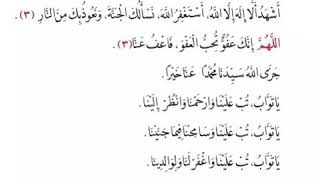 أَشْهَدُ أَلَّا إِلَهَ إِلَّا اللَّهُ، أَسْتَغْفِرُ اللَّهَ، نَسْأَلُكَ الْجَنَّةَ، وَنَعُوذُ بِكَ مِنَ النَّارِ (٣).
اللَّهُمَّ إِنَّكَ عَفُوٌّ تُحِبُّ الْعَفْوَ، فَاعْفُ عَنَّا (٣).
جَزَى اللَّهُ سَيِّدَنَا مُحَمَّدًا عَنَّا خَيْرًا.
يَا تَوَّابُ، تُبْ عَلَيْنَا وَارْحَمْنَا وَانْظُرْ إِلَيْنَا.
يَا تَوَّابُ، تُبْ عَلَيْنَا وَسَامِحْنَا فِيمَا جَنَيْنَا.
يَا تَوَّابُ، تُبْ عَلَيْنَا وَاغْفِرْ لَنَا وَلِوَالِدِينَا.